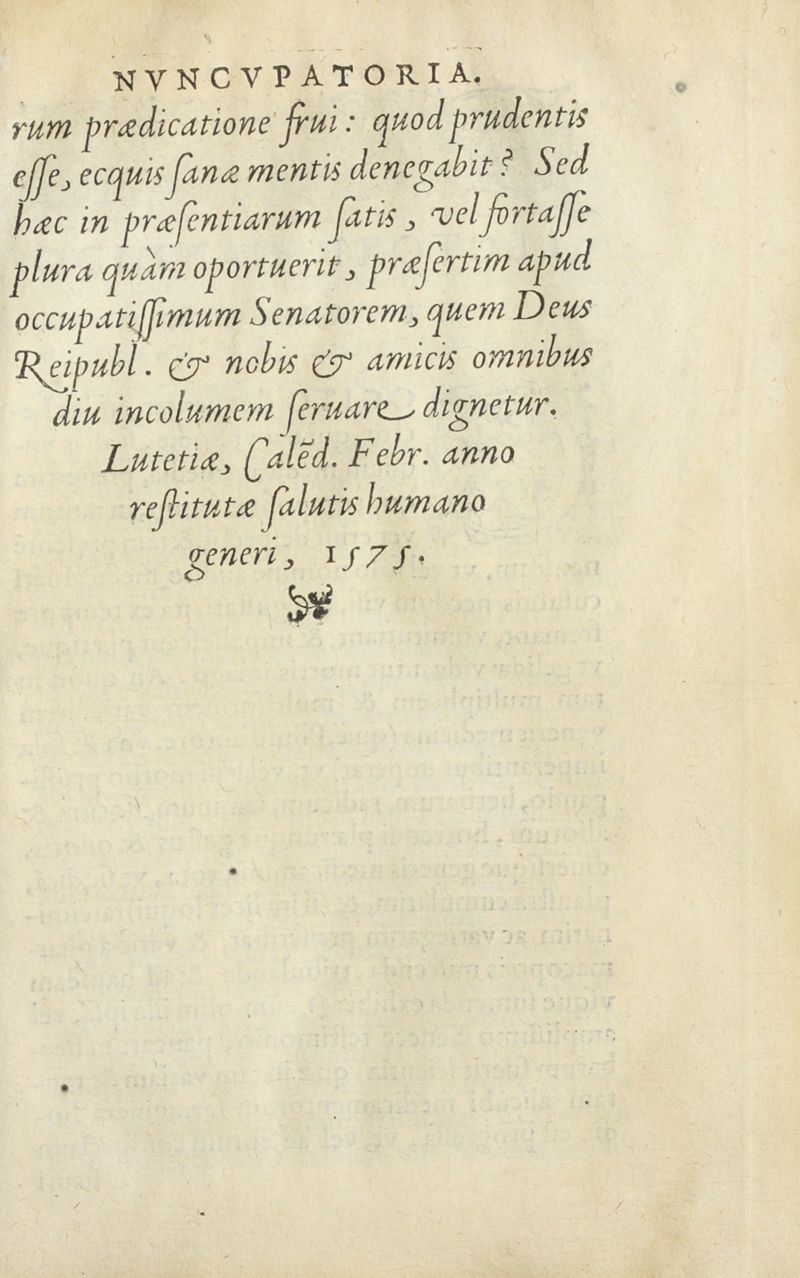 NVNCVPATORIA.
rum prædicatione frui: quod prudentis
eſſe, ecquis ſanæ mentis denegabit? Sed
hæc in præſentiarum ſatis, vel fortaſſe
plura quàm oportuerit, præſertim apud
occupatiſſimum Senatorem, quem Deus
Reipubl. & nobis & amicis omnibus
diu incolumem ſeruare dignetur.
Lutetiæ, Calēd. Febr. anno
reſtitutæ ſalutis humano
generi, 1575.